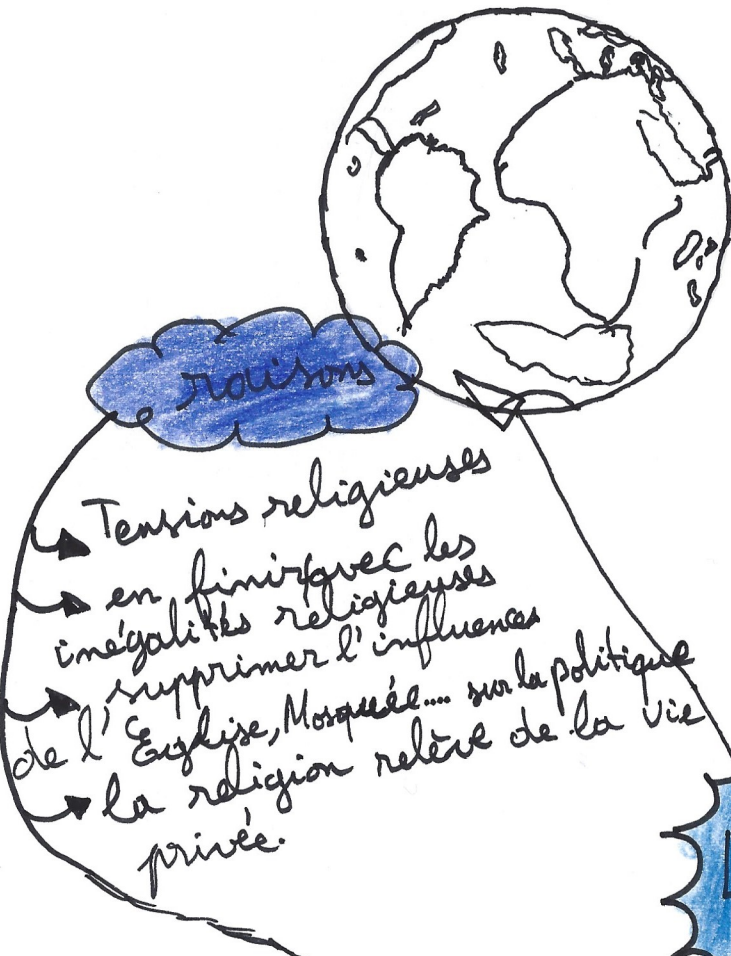 raisons
Tensions religieuses
en finir avec les
inégalités religieuses
supprimer l'influences
de l'Église, Mosquée.... sur la politique
la religion relève de la vie
privée.